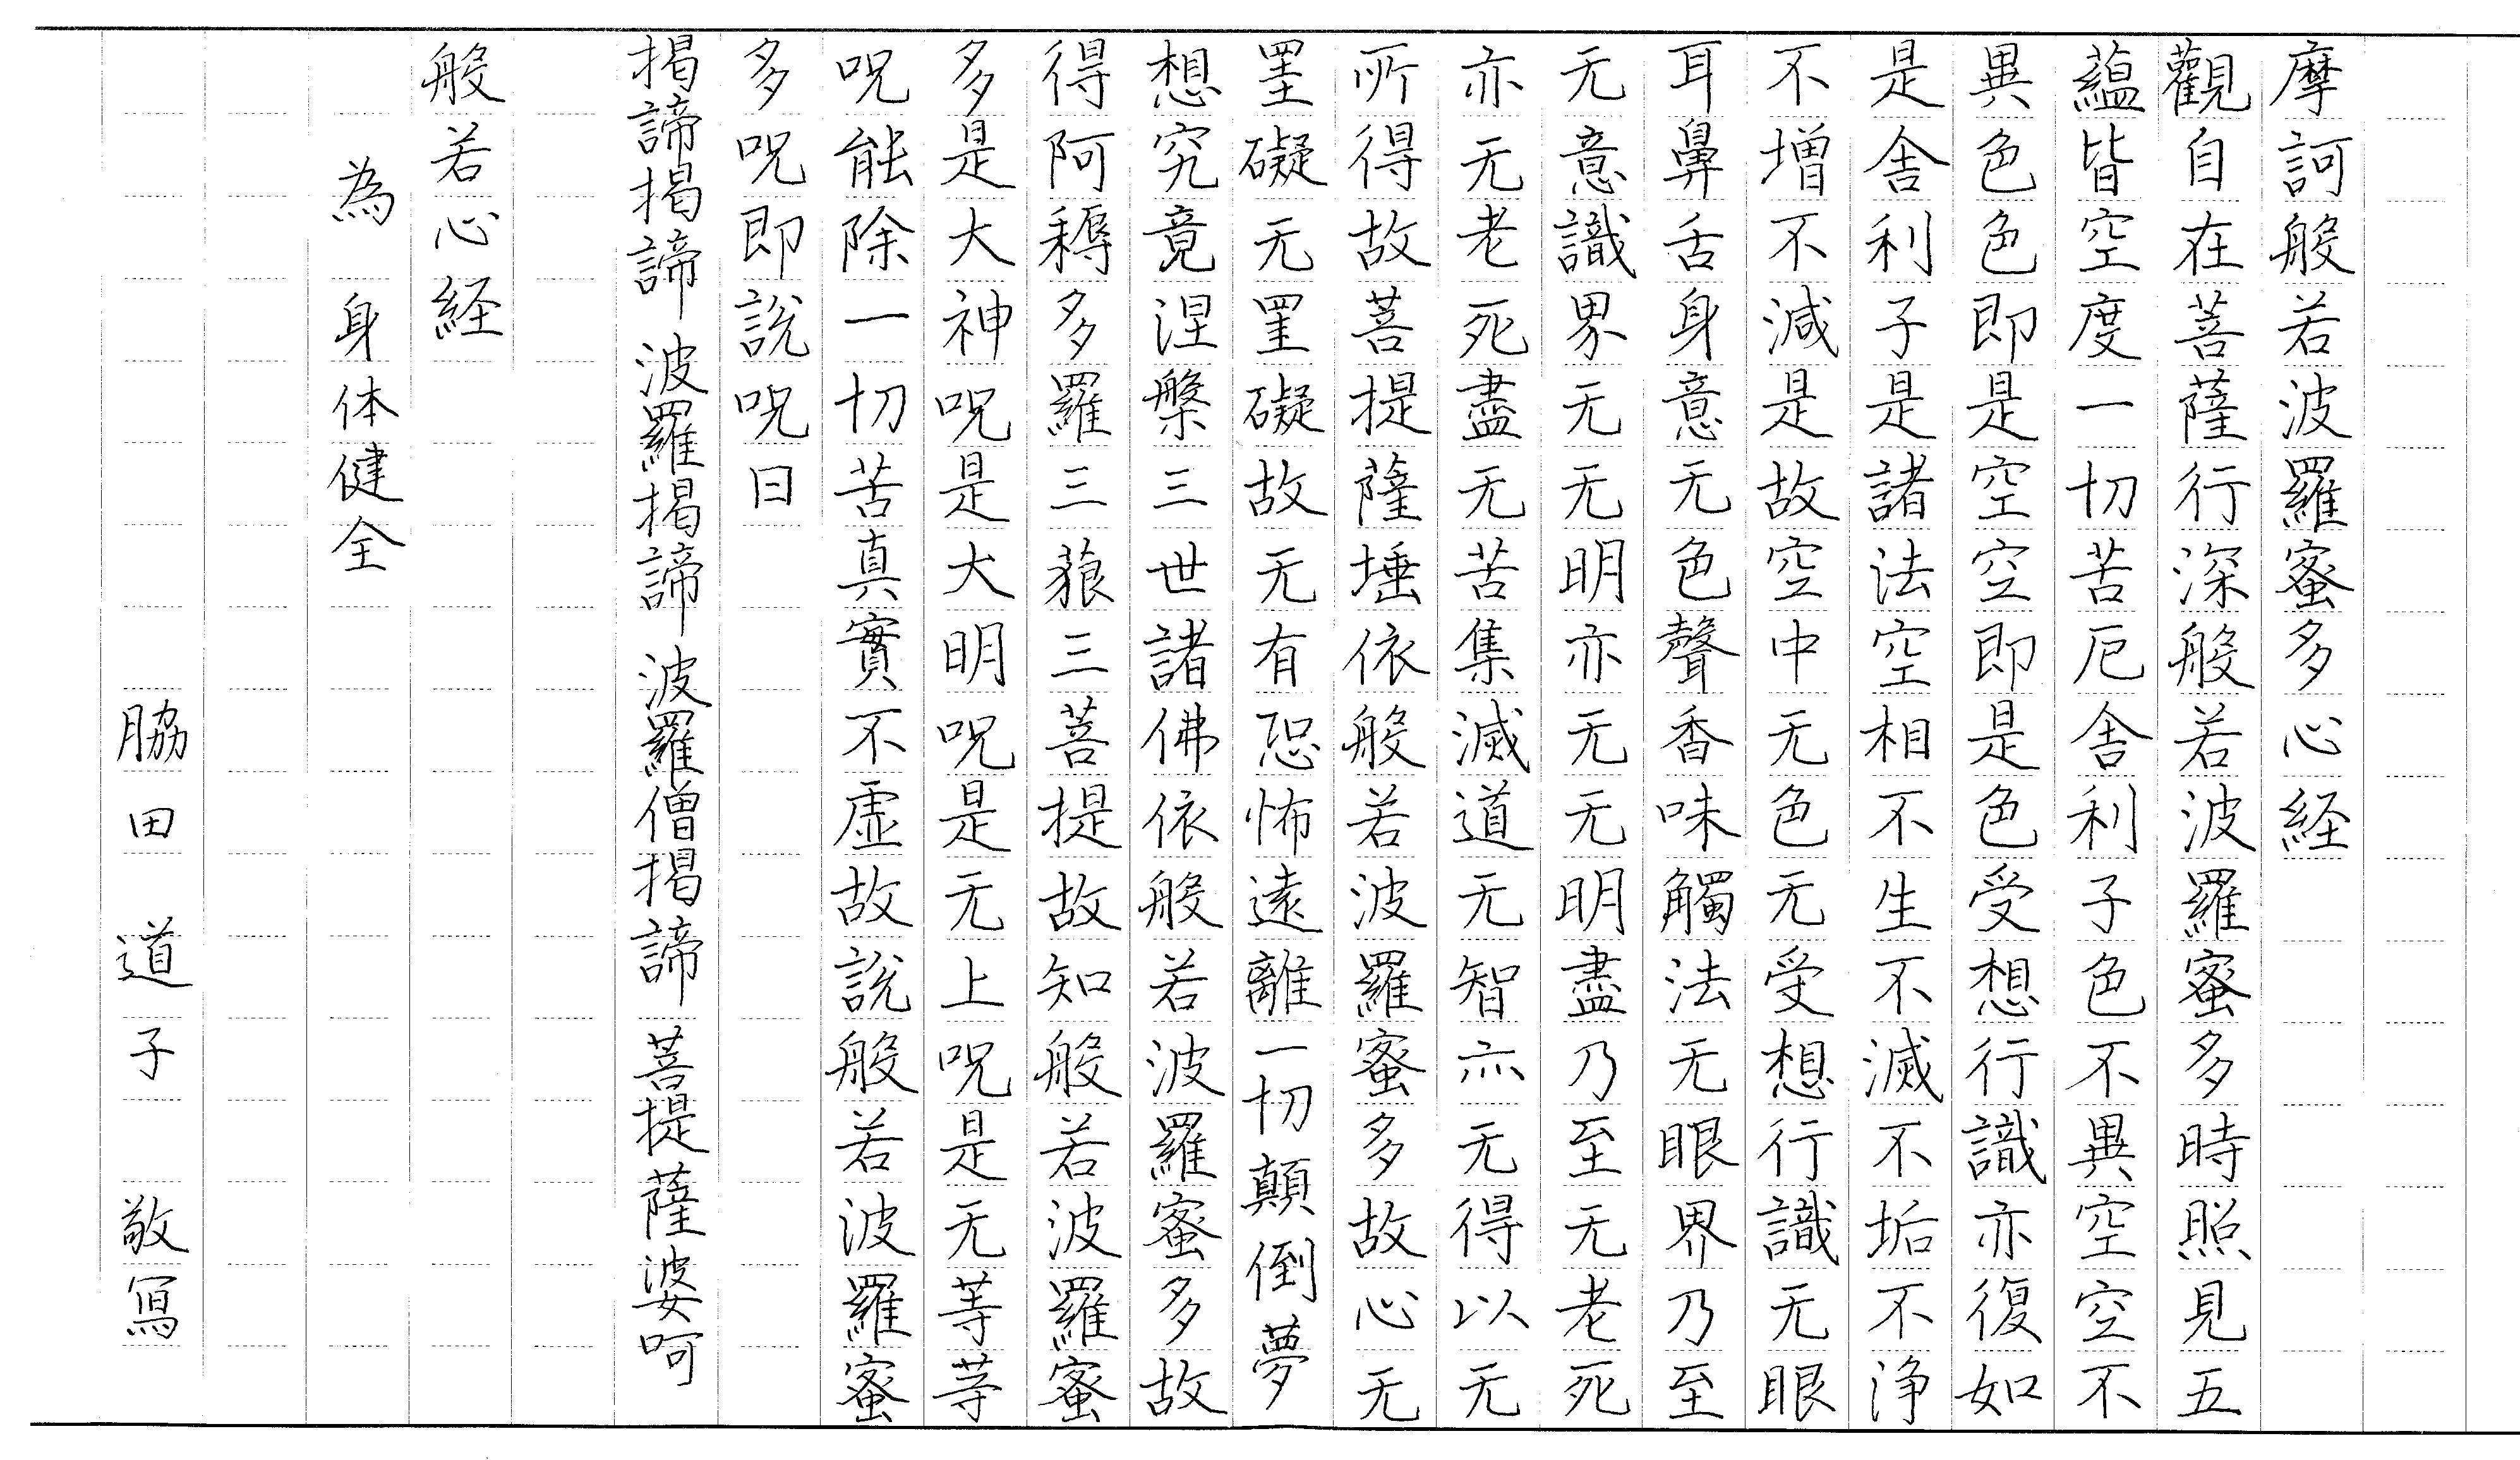 摩訶般若波羅蜜多心経
觀自在菩薩行深般若波羅蜜多時照見五
蘊皆空度一切苦厄舎利子色不異空空不
異色色即是空空即是色受想行識亦復如
是舎利子是諸法空相不生不滅不垢不浄
不増不減是故空中无色无受想行識无眼
耳鼻舌身意无色聲香味觸法无眼界乃至
无意識界无无明亦无无明盡乃至无老死
亦无老死盡无苦集滅道无智亦无得以无
所得故菩提薩埵依般若波羅蜜多故心无
罣礙无罣礙故无有恐怖遠離一切顛倒夢
想究竟涅槃三世諸佛依般若波羅蜜多故
得阿耨多羅三藐三菩提故知般若波羅蜜
多是大神呪是大明呪是无上呪是无等等
呪能除一切苦真實不虚故說般若波羅蜜
多呪即說呪曰
掲諦掲諦 波羅掲諦 波羅僧掲諦 菩提薩婆呵
般若心経
為 身体健全
脇田道子 敬寫